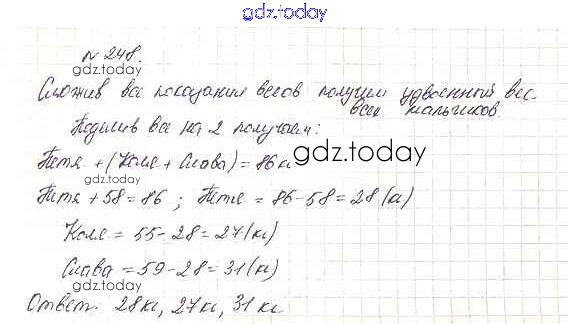 gdz.today
№ 248.
gdz.today
Сложив все показания весов получим удвоенный вес
всех мальчиков.
Поделив все на 2 получаем:
Петя + (Коля + Слава) = 86 кг
gdz.today
gdz.today
Петя + 58 = 86 ; Петя = 86 - 58 = 28 (кг)
Коля = 55 - 28 = 27 (кг)
Слава = 59 - 28 = 31 (кг)
gdz.today
Ответ: 28 кг, 27 кг, 31 кг.